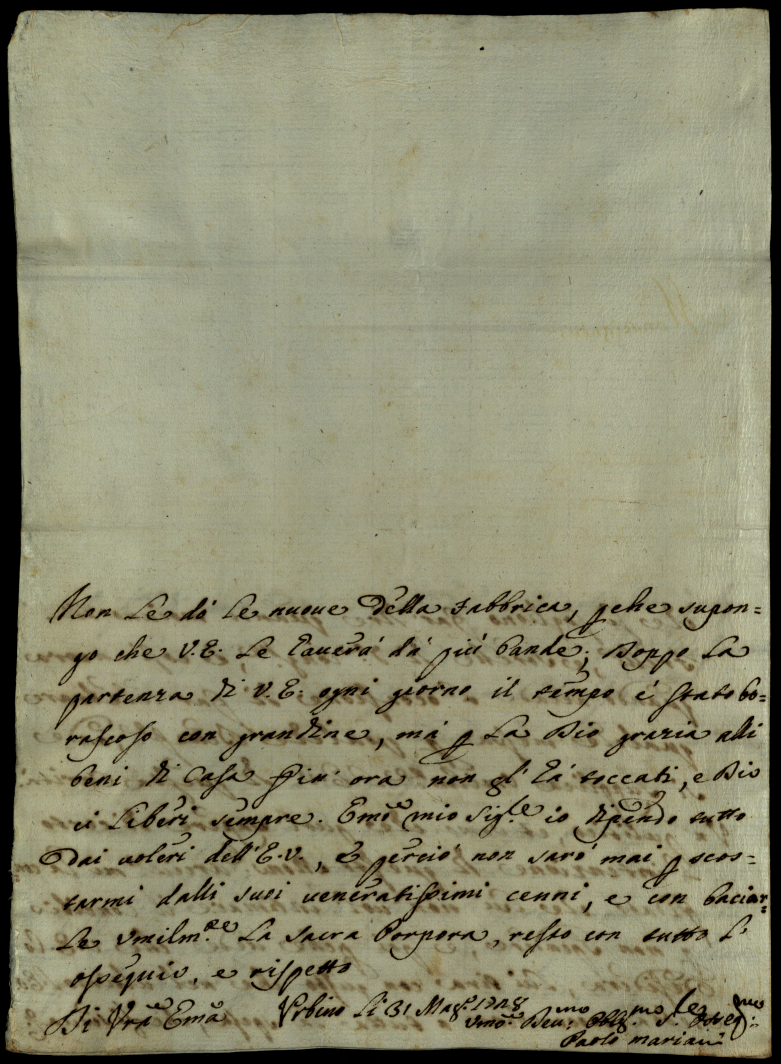 Non Le dò Le nuove della fabbrica, p che supon=
go che V.E. Le l'averà dà più bande; Doppo La
partenza di V.E. ogni giorno il tempo è stato bo=
rascoso con grandine, mà p La Dio grazia alli
beni di Casa fin' ora non gl' hà toccati, e Dio
ci Liberi sempre. Emõ mio Sig.re io dipendo tutto
Dai voleri dell' E.V., e perciò non sarò mai p scos=
tarmi dalli suoi veneratissimi cenni, e con baciar=
Le Vmilm.te La Sacra Porpora, resto con tutto L'
ossequio, e rispetto
Di Vrã Emã Vrbino Li 31 Mag.o
Vmõ Dev.mo Obl.mo S.re
Paolo Mariani